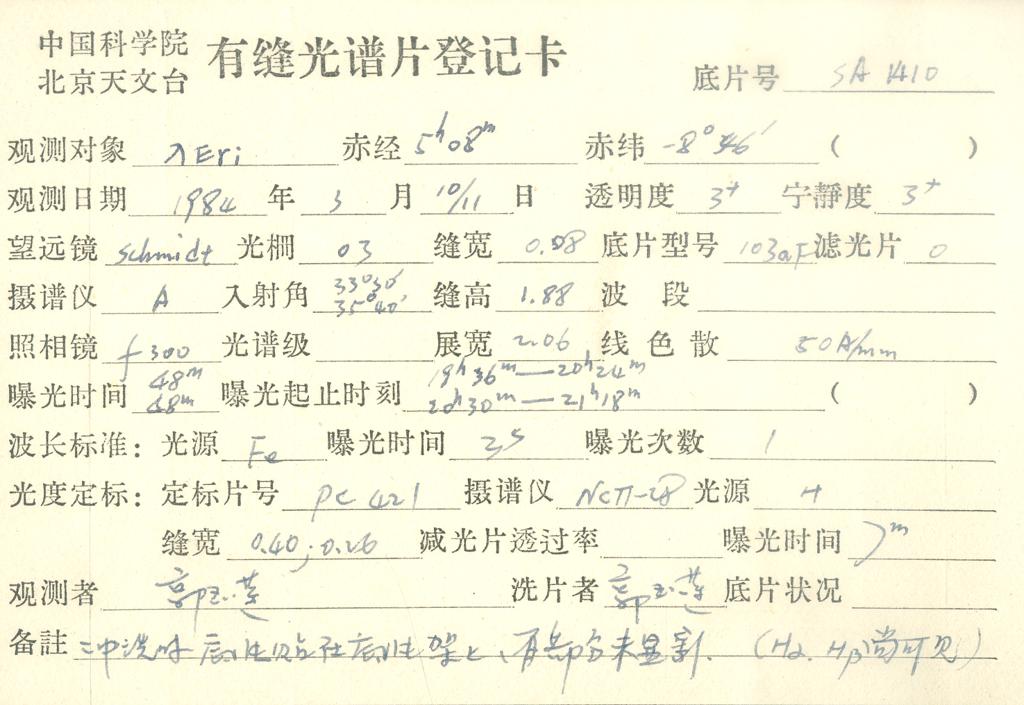 中国科学院
北京天文台
有缝光谱片登记卡
底片号 SA 1410
观测对象 λEri 赤经 5ʰ08ᵐ 赤纬 -8°46′ ( )
观测日期 1984 年 3 月 10/11 日 透明度 3⁺ 宁静度 3⁺
望远镜 Schmidt 光栅 03 缝宽 0.08 底片型号 103aF 滤光片 0
摄谱仪 A 入射角 33°30′ 35°40′ 缝高 1.88 波段
照相镜 f300 光谱级 展宽 2.06 线色散 50A/mm
曝光时间 48ᵐ 48ᵐ 曝光起止时刻 19ʰ36ᵐ—20ʰ24ᵐ 20ʰ30ᵐ—21ʰ18ᵐ ( )
波长标准: 光源 Fe 曝光时间 3ˢ 曝光次数 1
光度定标: 定标片号 PC 421 摄谱仪 光源 H
缝宽 0.40; 0.26 减光片透过率 曝光时间 7ᵐ
观测者 郭玉莲 洗片者 郭玉莲 底片状况
备註 冲洗时底片贴在底片架上、有部分未显影. (Hα. Hβ尚可见)